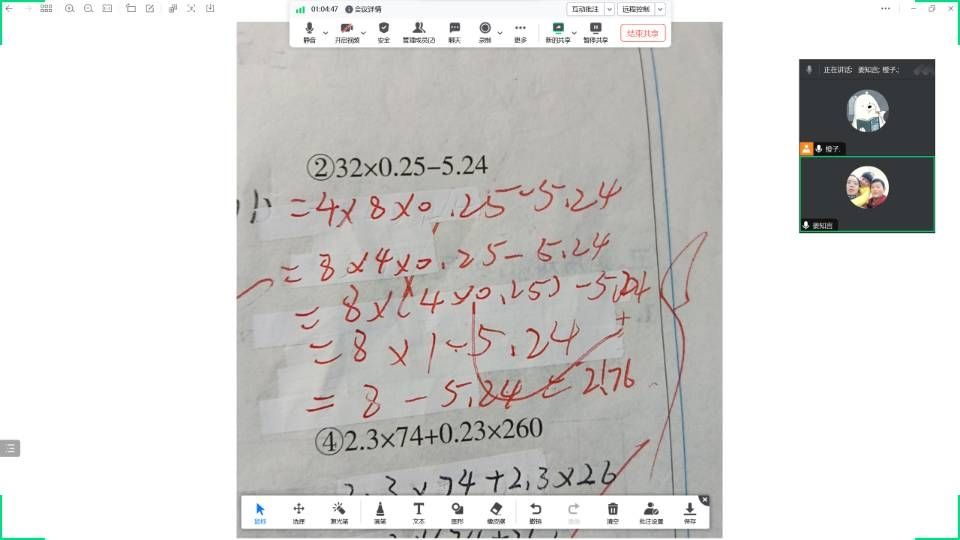 01:04:47 会议详情
互动批注 远程控制
静音 开启视频 安全 管理成员(2) 聊天 录制 更多 新的共享 暂停共享 结束共享
正在讲话: 姜知言; 橙子;
橙子.
姜知言
②32×0.25−5.24
=4×8×0.25-5.24
=8×4×0.25-5.24
=8×(4×0.25)-5.24
=8×1-5.24
=8-5.24=2.76
④2.3×74+0.23×260
2.3×74+2.3×26
鼠标 选择 激光笔 画笔 文本 图形 橡皮擦 撤销 清空 批注设置 保存